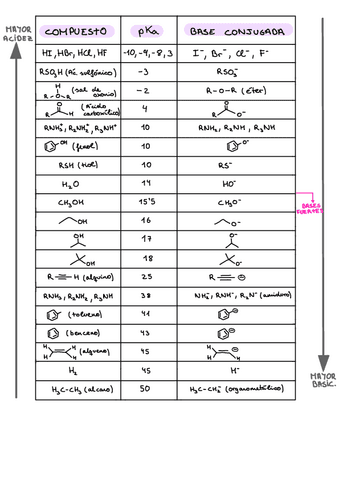 MAYOR
ACIDEZ
COMPUESTO pKa BASE CONJUGADA
HI, HBr, HCl, HF -10, -9, -8, 3 I⁻, Br⁻, Cl⁻, F⁻
RSO₃H (Ác. sulfónico) -3 RSO₃⁻
R-O-R H (sal de oxonio) -2 R-O-R (éter)
R OH O (Ácido carboxílico) 4 R O⁻ O
RNH₃⁺, R₂NH₂⁺, R₃NH⁺ 10 RNH₂, R₂NH, R₃N
OH (fenol) 10 O⁻
RSH (tiol) 10 RS⁻
H₂O 14 HO⁻
CH₃OH 15'5 CH₃O⁻
BASES
FUERTES
OH 16 O⁻
OH 17 O⁻
OH 18 O⁻
R≡H (alquino) 25 R≡⊖
RNH₂, R₂NH 38 NH₂⁻, RNH⁻, R₂N⁻ (amiduro)
(tolueno) 41 ⊖
(benceno) 43 ⊖
H H H H (alqueno) 45 H H H ⊖
H₂ 45 H⁻
H₃C-CH₃ (alcano) 50 H₃C-CH₂⁻ (organometálico)
MAYOR
BASIC.